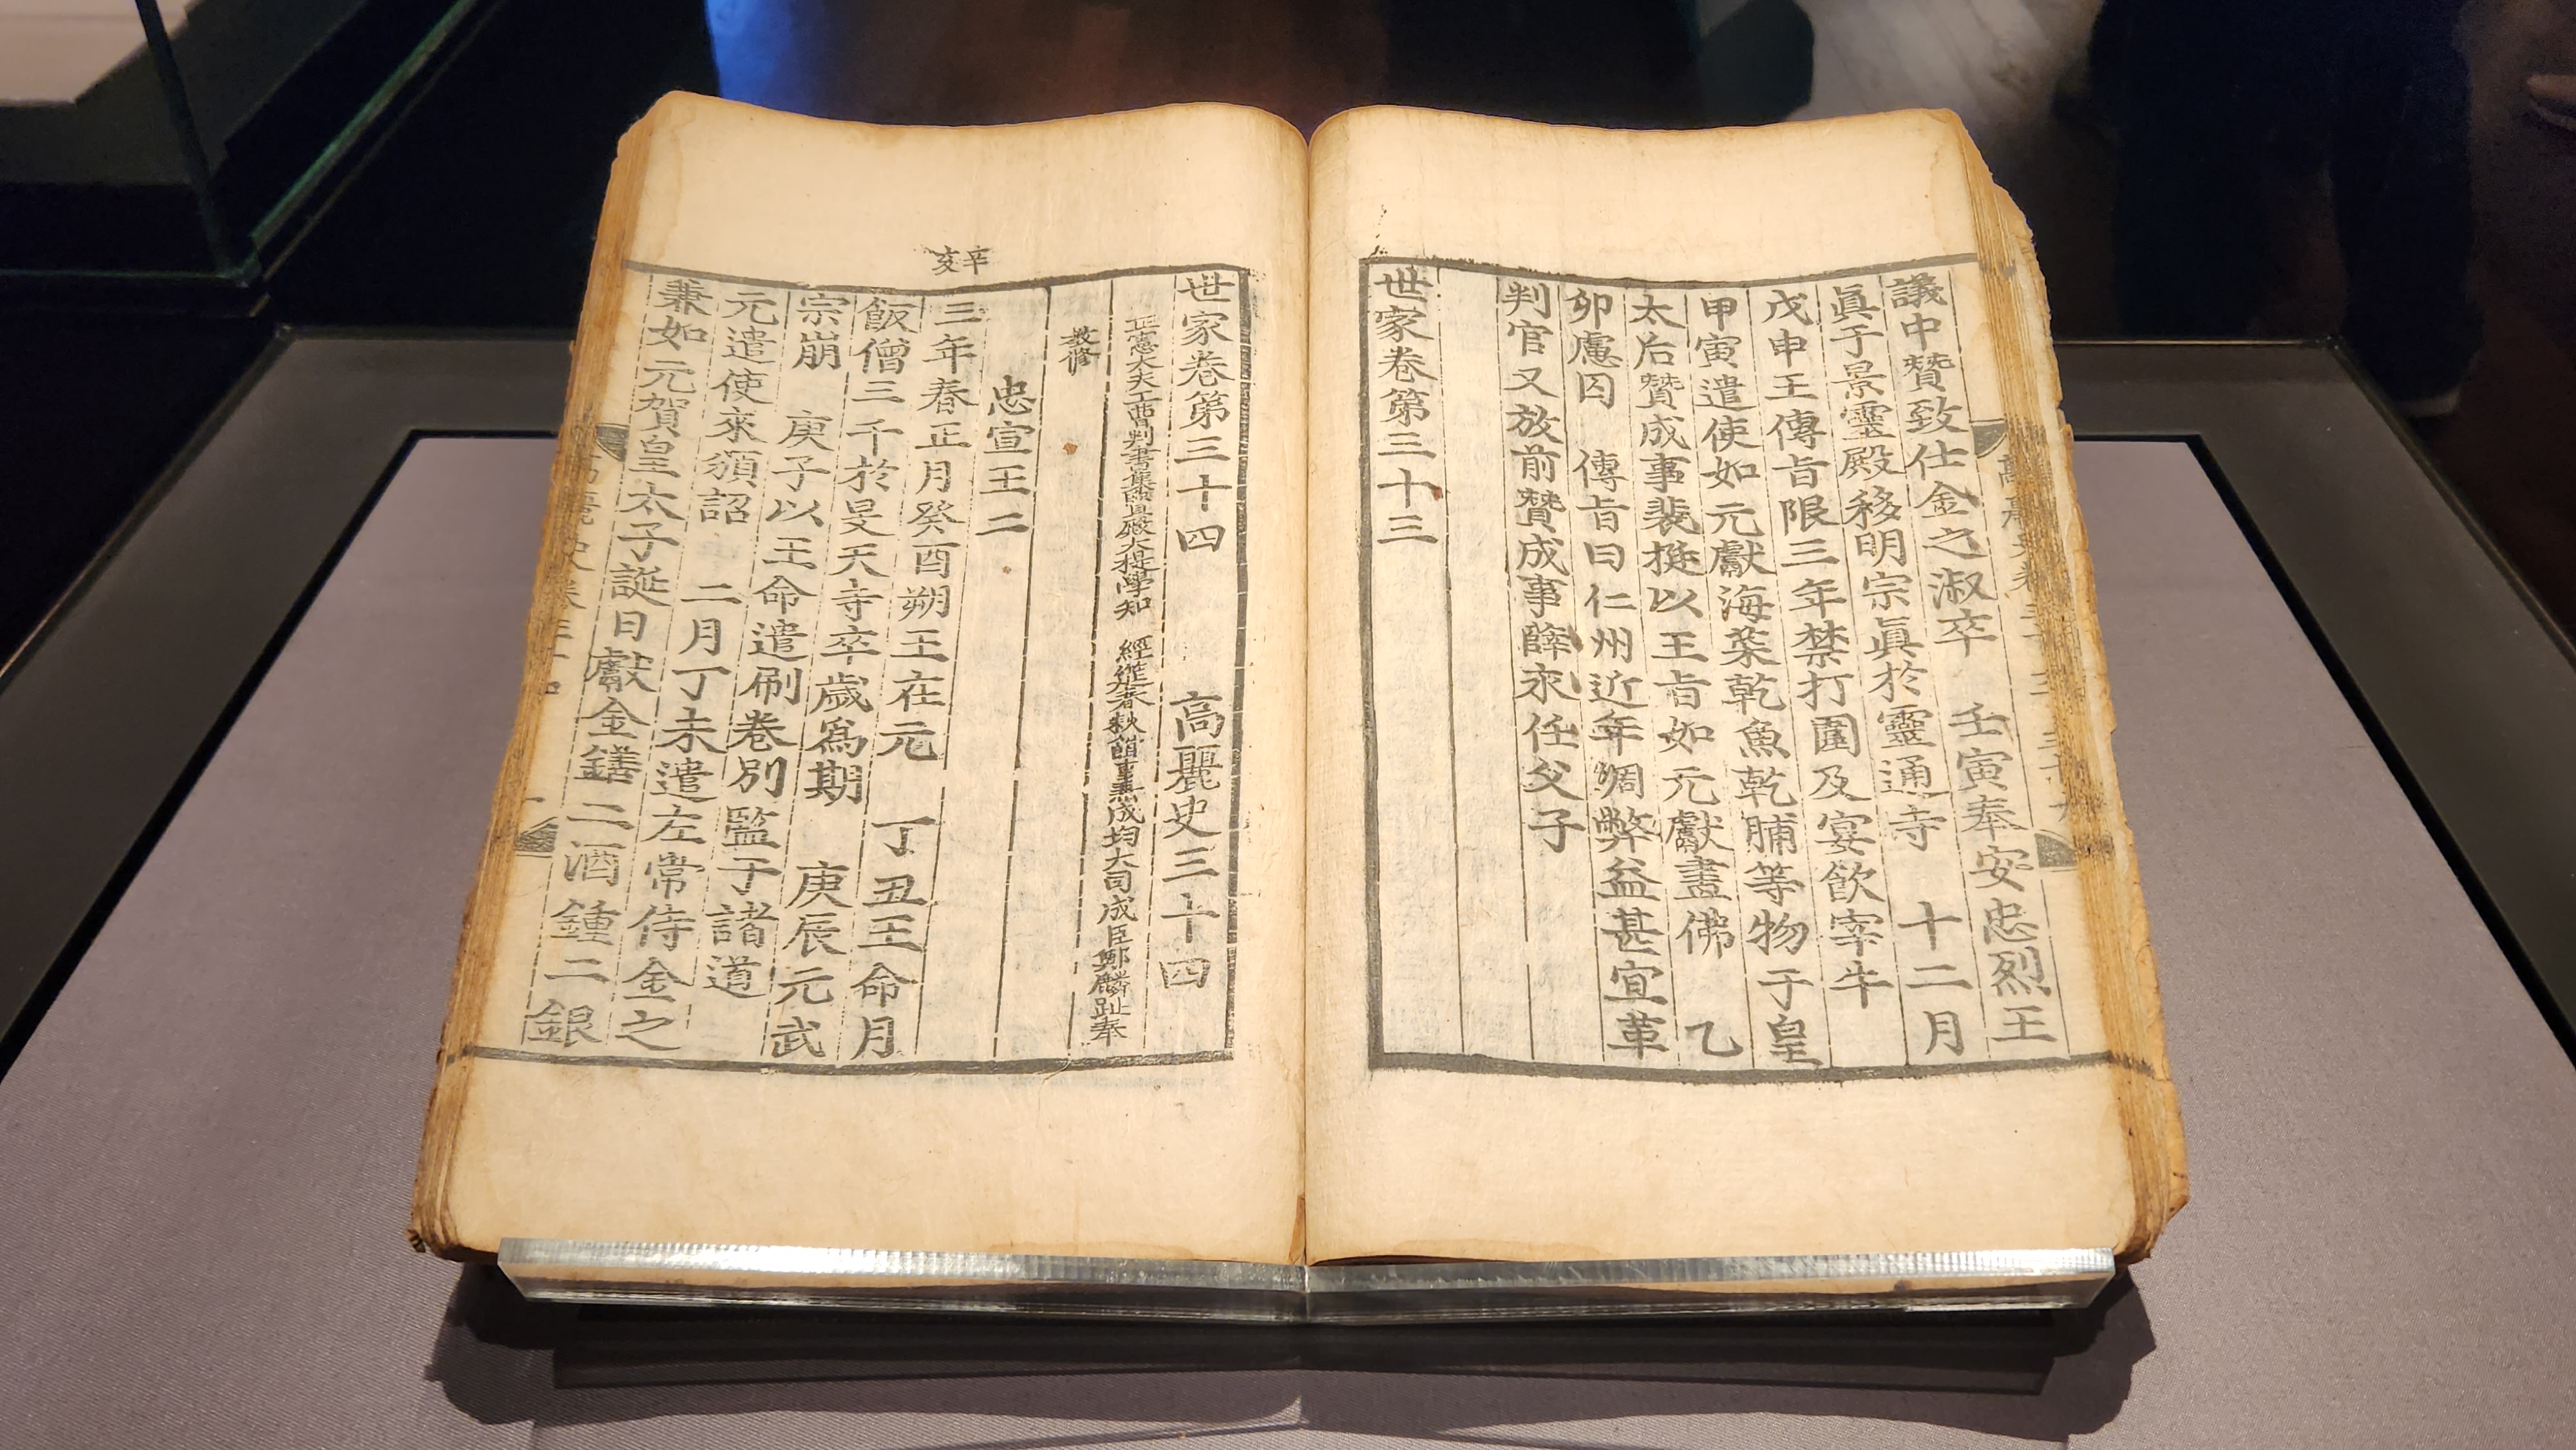 議中贊致仕金之淑卒　壬寅奉安忠烈王
眞于景靈殿移明宗眞於靈通寺　十二月
戊申王傳旨限三年禁打圍及宴飮宰牛
甲寅遣使如元獻海菜乾魚乾脯等物于皇
太后贊成事裴挺以王旨如元獻畫佛　乙
卯慮囚　傳旨曰仁州近年凋弊益甚宜革
判官又放前贊成事薛永任父子
世家卷第三十三
世家卷第三十四　高麗史三十四
正憲大夫工曹判書集賢殿大提學知　經筵春秋館事兼成均大司成臣鄭麟趾奉
教修
忠宣王二
辛亥
三年春正月癸酉朔王在元　丁丑王命月
飯僧三千於旻天寺卒歲爲期　庚辰元武
宗崩　庚子以王命遣刷卷別監于諸道
元遣使來頒詔　二月丁未遣左常侍金之
兼如元賀皇太子誕日獻金鐥二酒鍾二銀
高麗史卷三十四